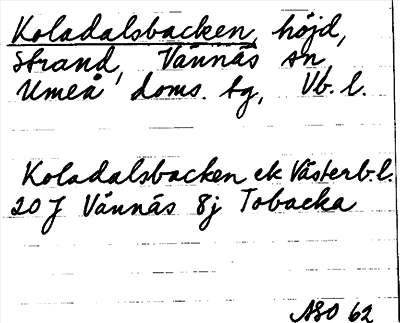 Koladalsbacken, höjd,
Strand, Vännäs sn,
Umeå doms. tg, Vb. l.
Koladalsbacken ek Västerb.l.
20J Vännäs 8j Tobacka
ASO 62